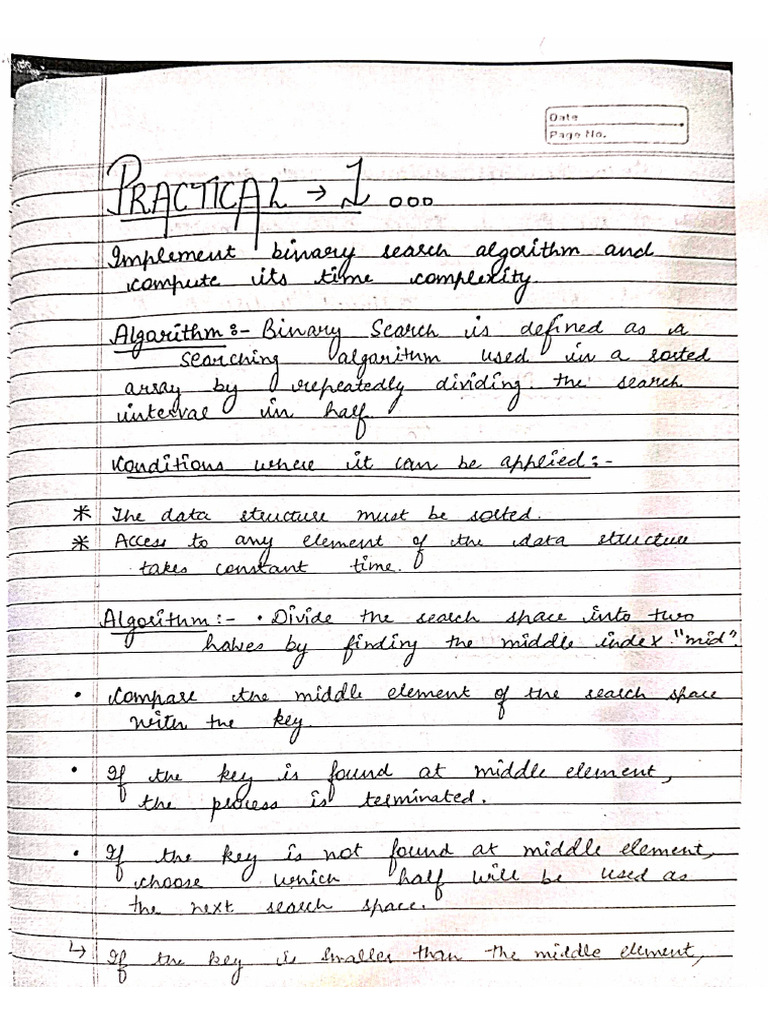 Date
Page No.
PRACTICAL → 1 ...
Implement binary search algorithm and
compute its time complexity.
Algorithm :- Binary Search is defined as a
searching algorithm used in a sorted
array by repeatedly dividing the search
interval in half.
Conditions where it can be applied :-
* The data structure must be sorted.
* Access to any element of the data structure
takes constant time.
Algorithm :- • Divide the search space into two
halves by finding the middle index "mid".
• Compare the middle element of the search space
with the key.
• If the key is found at middle element,
the process is terminated.
• If the key is not found at middle element,
choose which half will be used as
the next search space.
↳ If the key is smaller than the middle element,